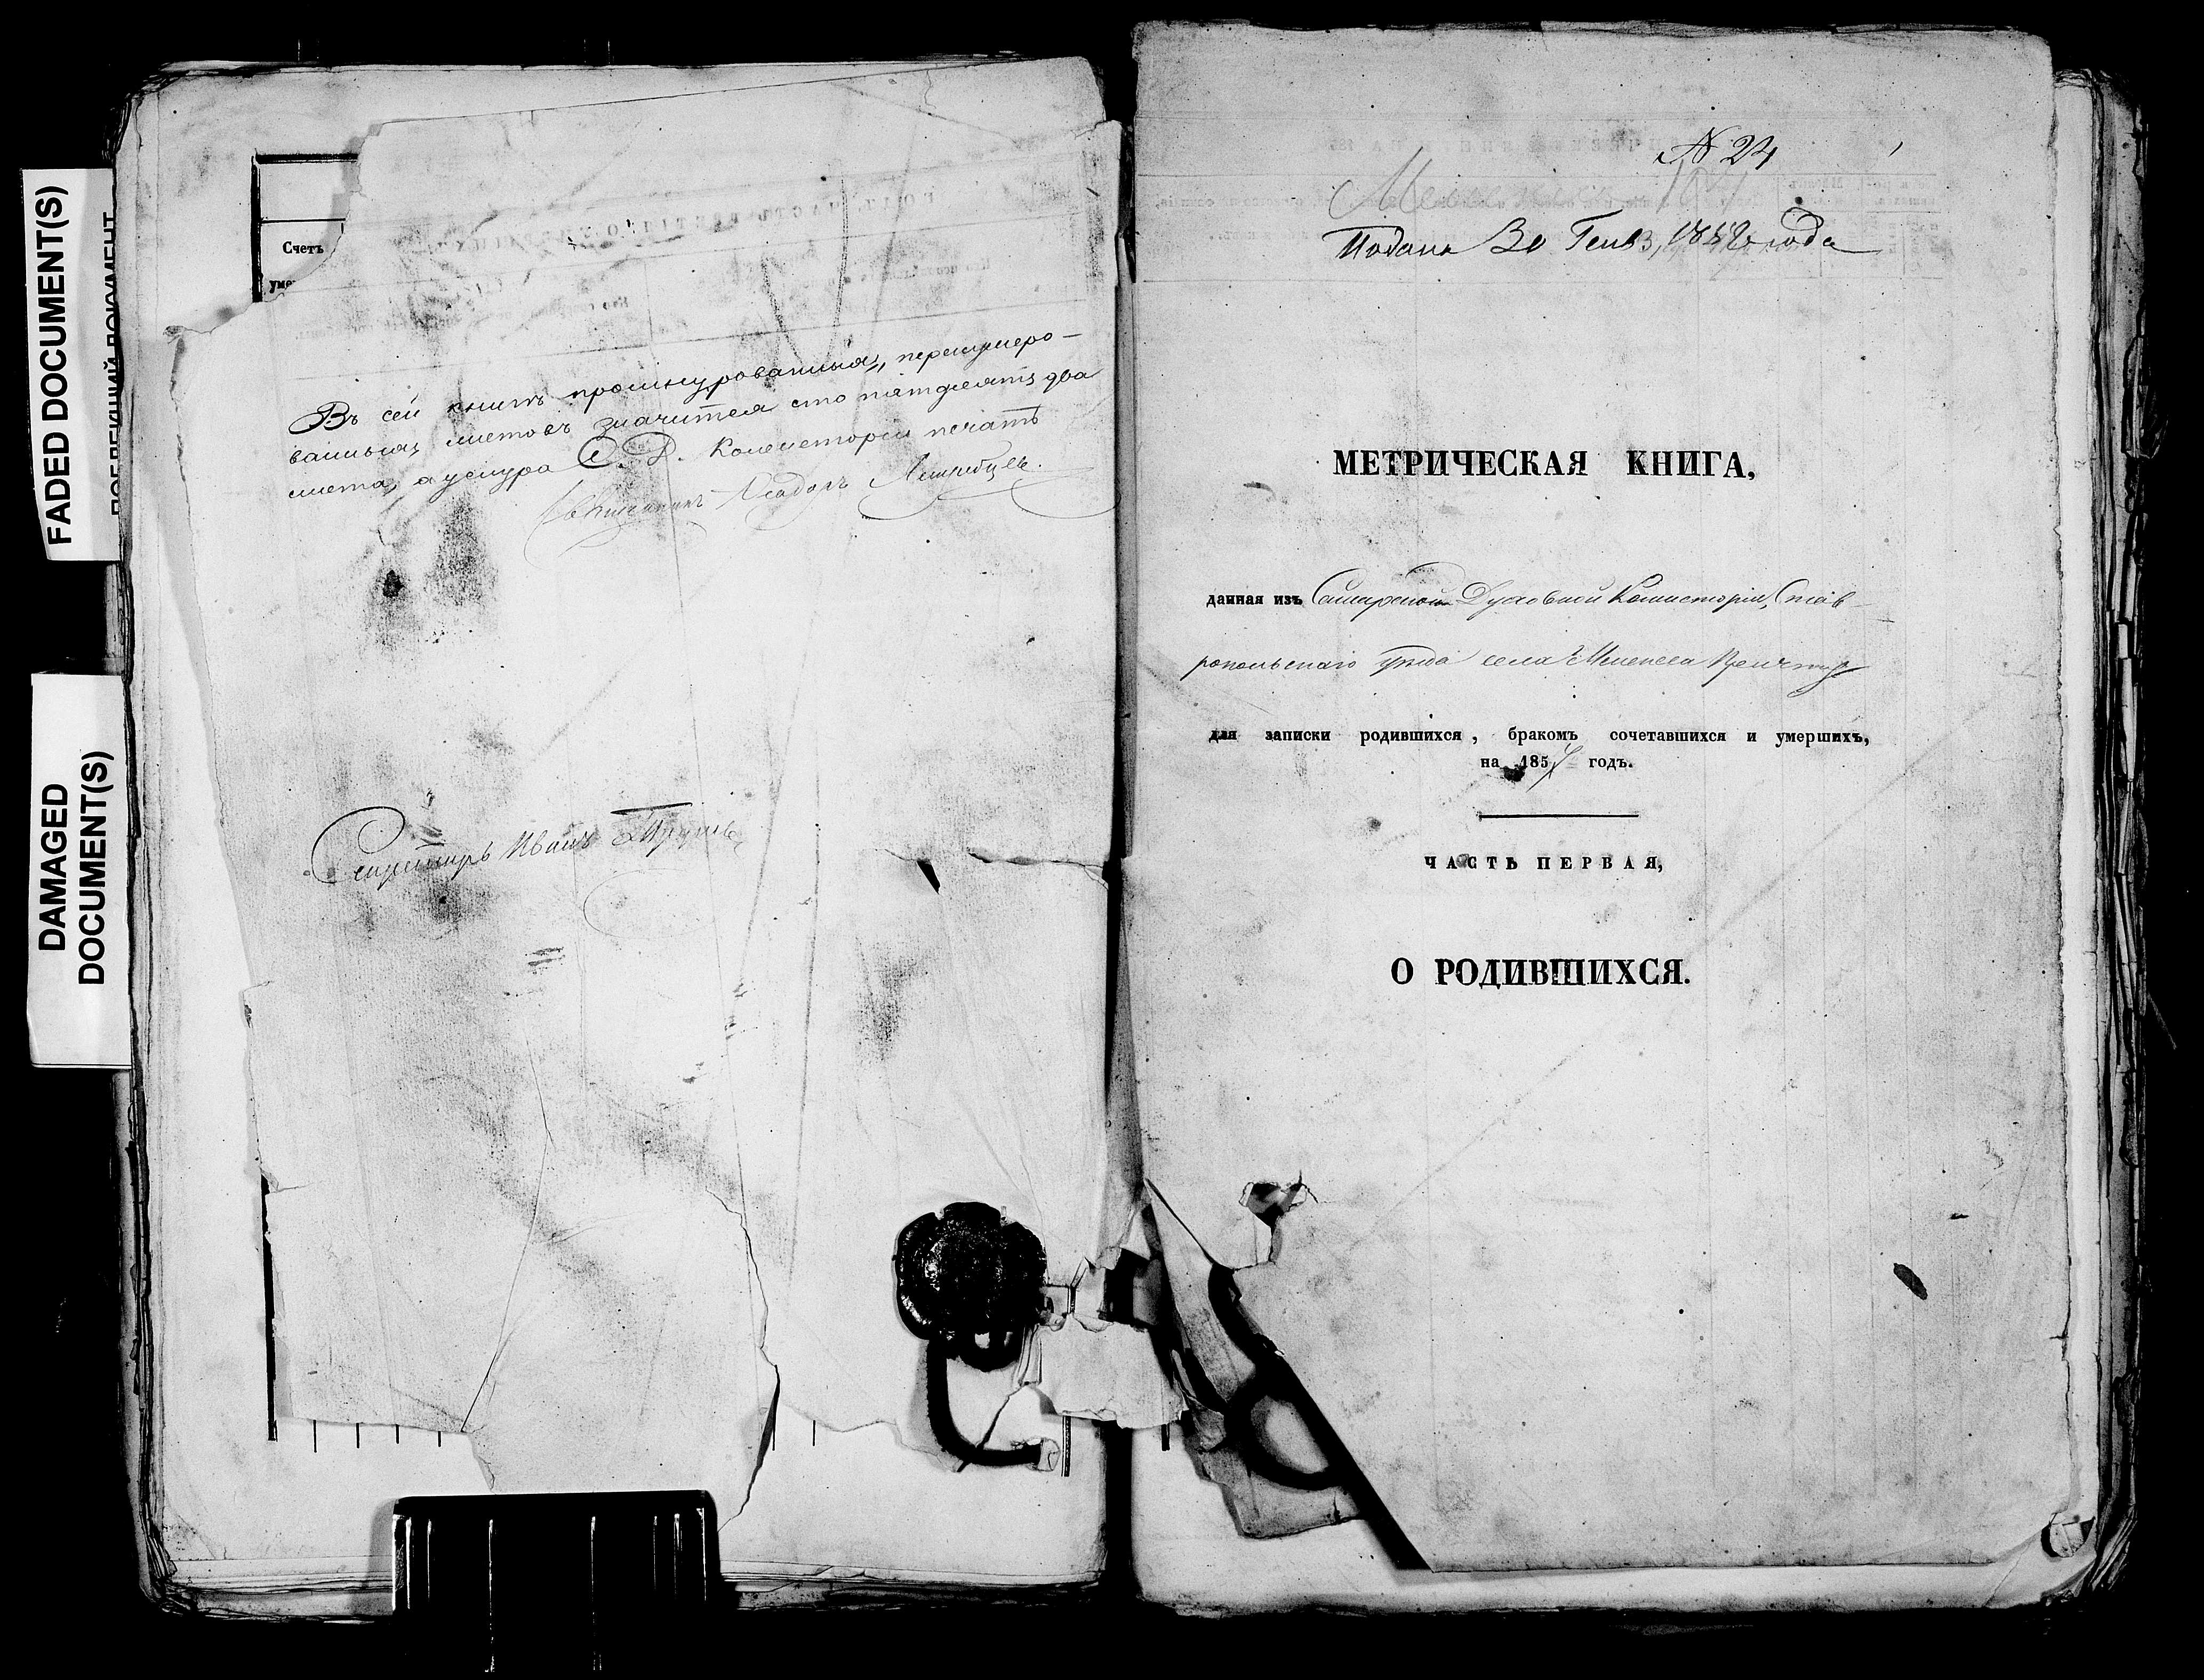 FADED DOCUMENT(S)
DAMAGED
DOCUMENT(S)
Счетъ
Въ сей книгѣ прошнурованныхъ, перенумеро-
ванныхъ листовъ значится сто пятдесятъ два
листа, а у шнура С. Д. Консисторіи печать
Секретарь Иванъ
№ 24
Подана 30 Генв, года
МЕТРИЧЕСКАЯ КНИГА,
данная изъ Самарской Духовной Консисторіи, Став-
ропольскаго уѣзда села Мелекеса
для записки родившихся, бракомъ сочетавшихся и умершихъ,
на годъ.
ЧАСТЬ ПЕРВАЯ,
О РОДИВШИХСЯ.